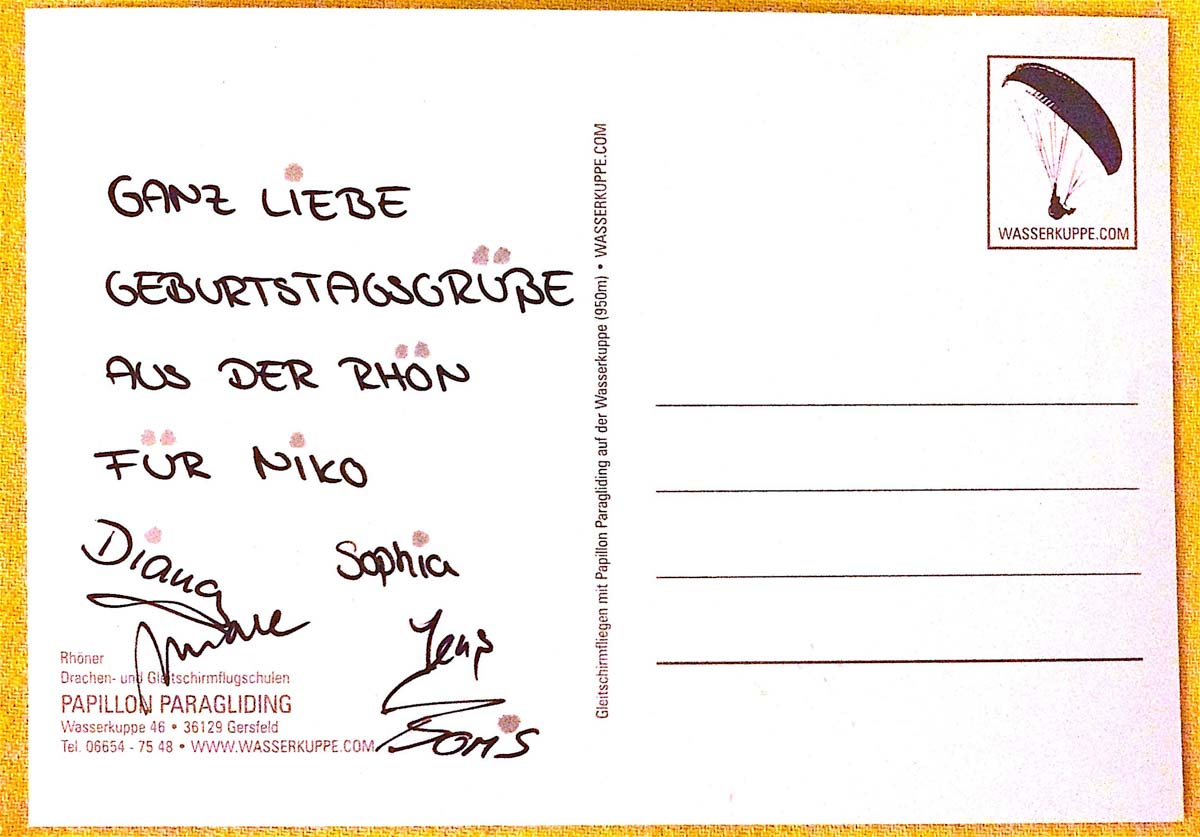 GANZ LIEBE
GEBURTSTAGSGRÜßE
AUS DER RHÖN
FÜR NIKO
Diana
Sophia
Jens
Rhöner
Drachen- und Gleitschirmflugschulen
PAPILLON PARAGLIDING
Wasserkuppe 46 • 36129 Gersfeld
Tel. 06654 - 75 48 • WWW.WASSERKUPPE.COM
Gleitschirmfliegen mit Papillon Paragliding auf der Wasserkuppe (950m) • WASSERKUPPE.COM
WASSERKUPPE.COM